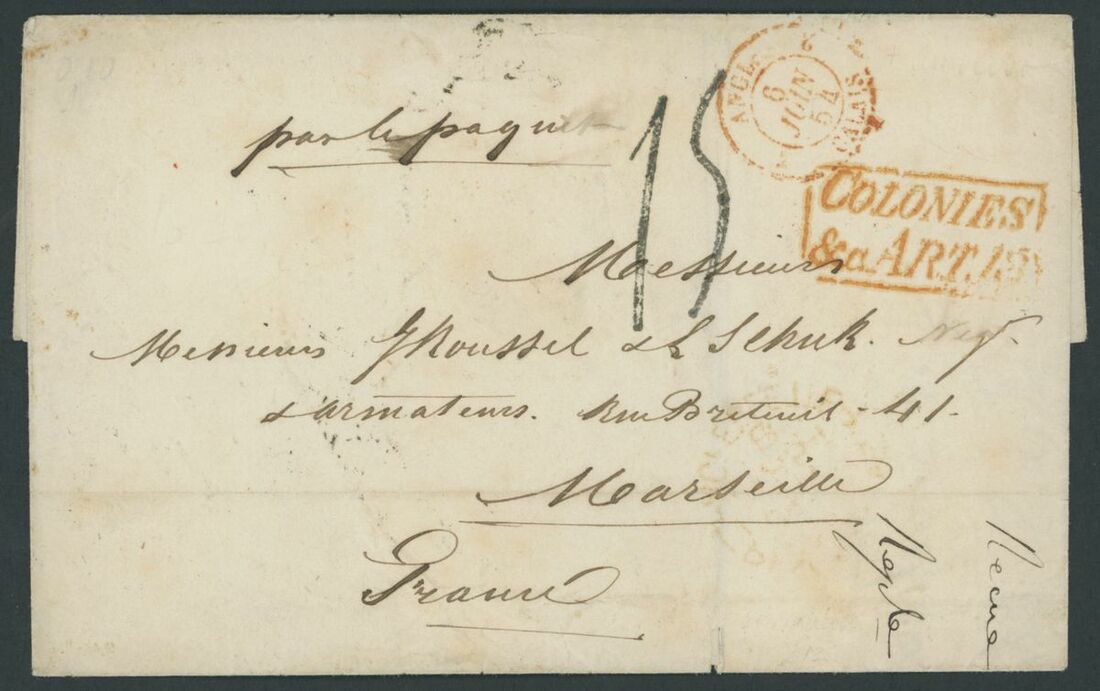 par le paquet
15
ANGL. 2 CALAIS
6
JUIN
54
COLONIES
&a ART. 13
Messieurs
Messieurs J Roussel & L Schuk. Neg.
& armateurs. Rue Breteuil - 41 -
Marseille
France